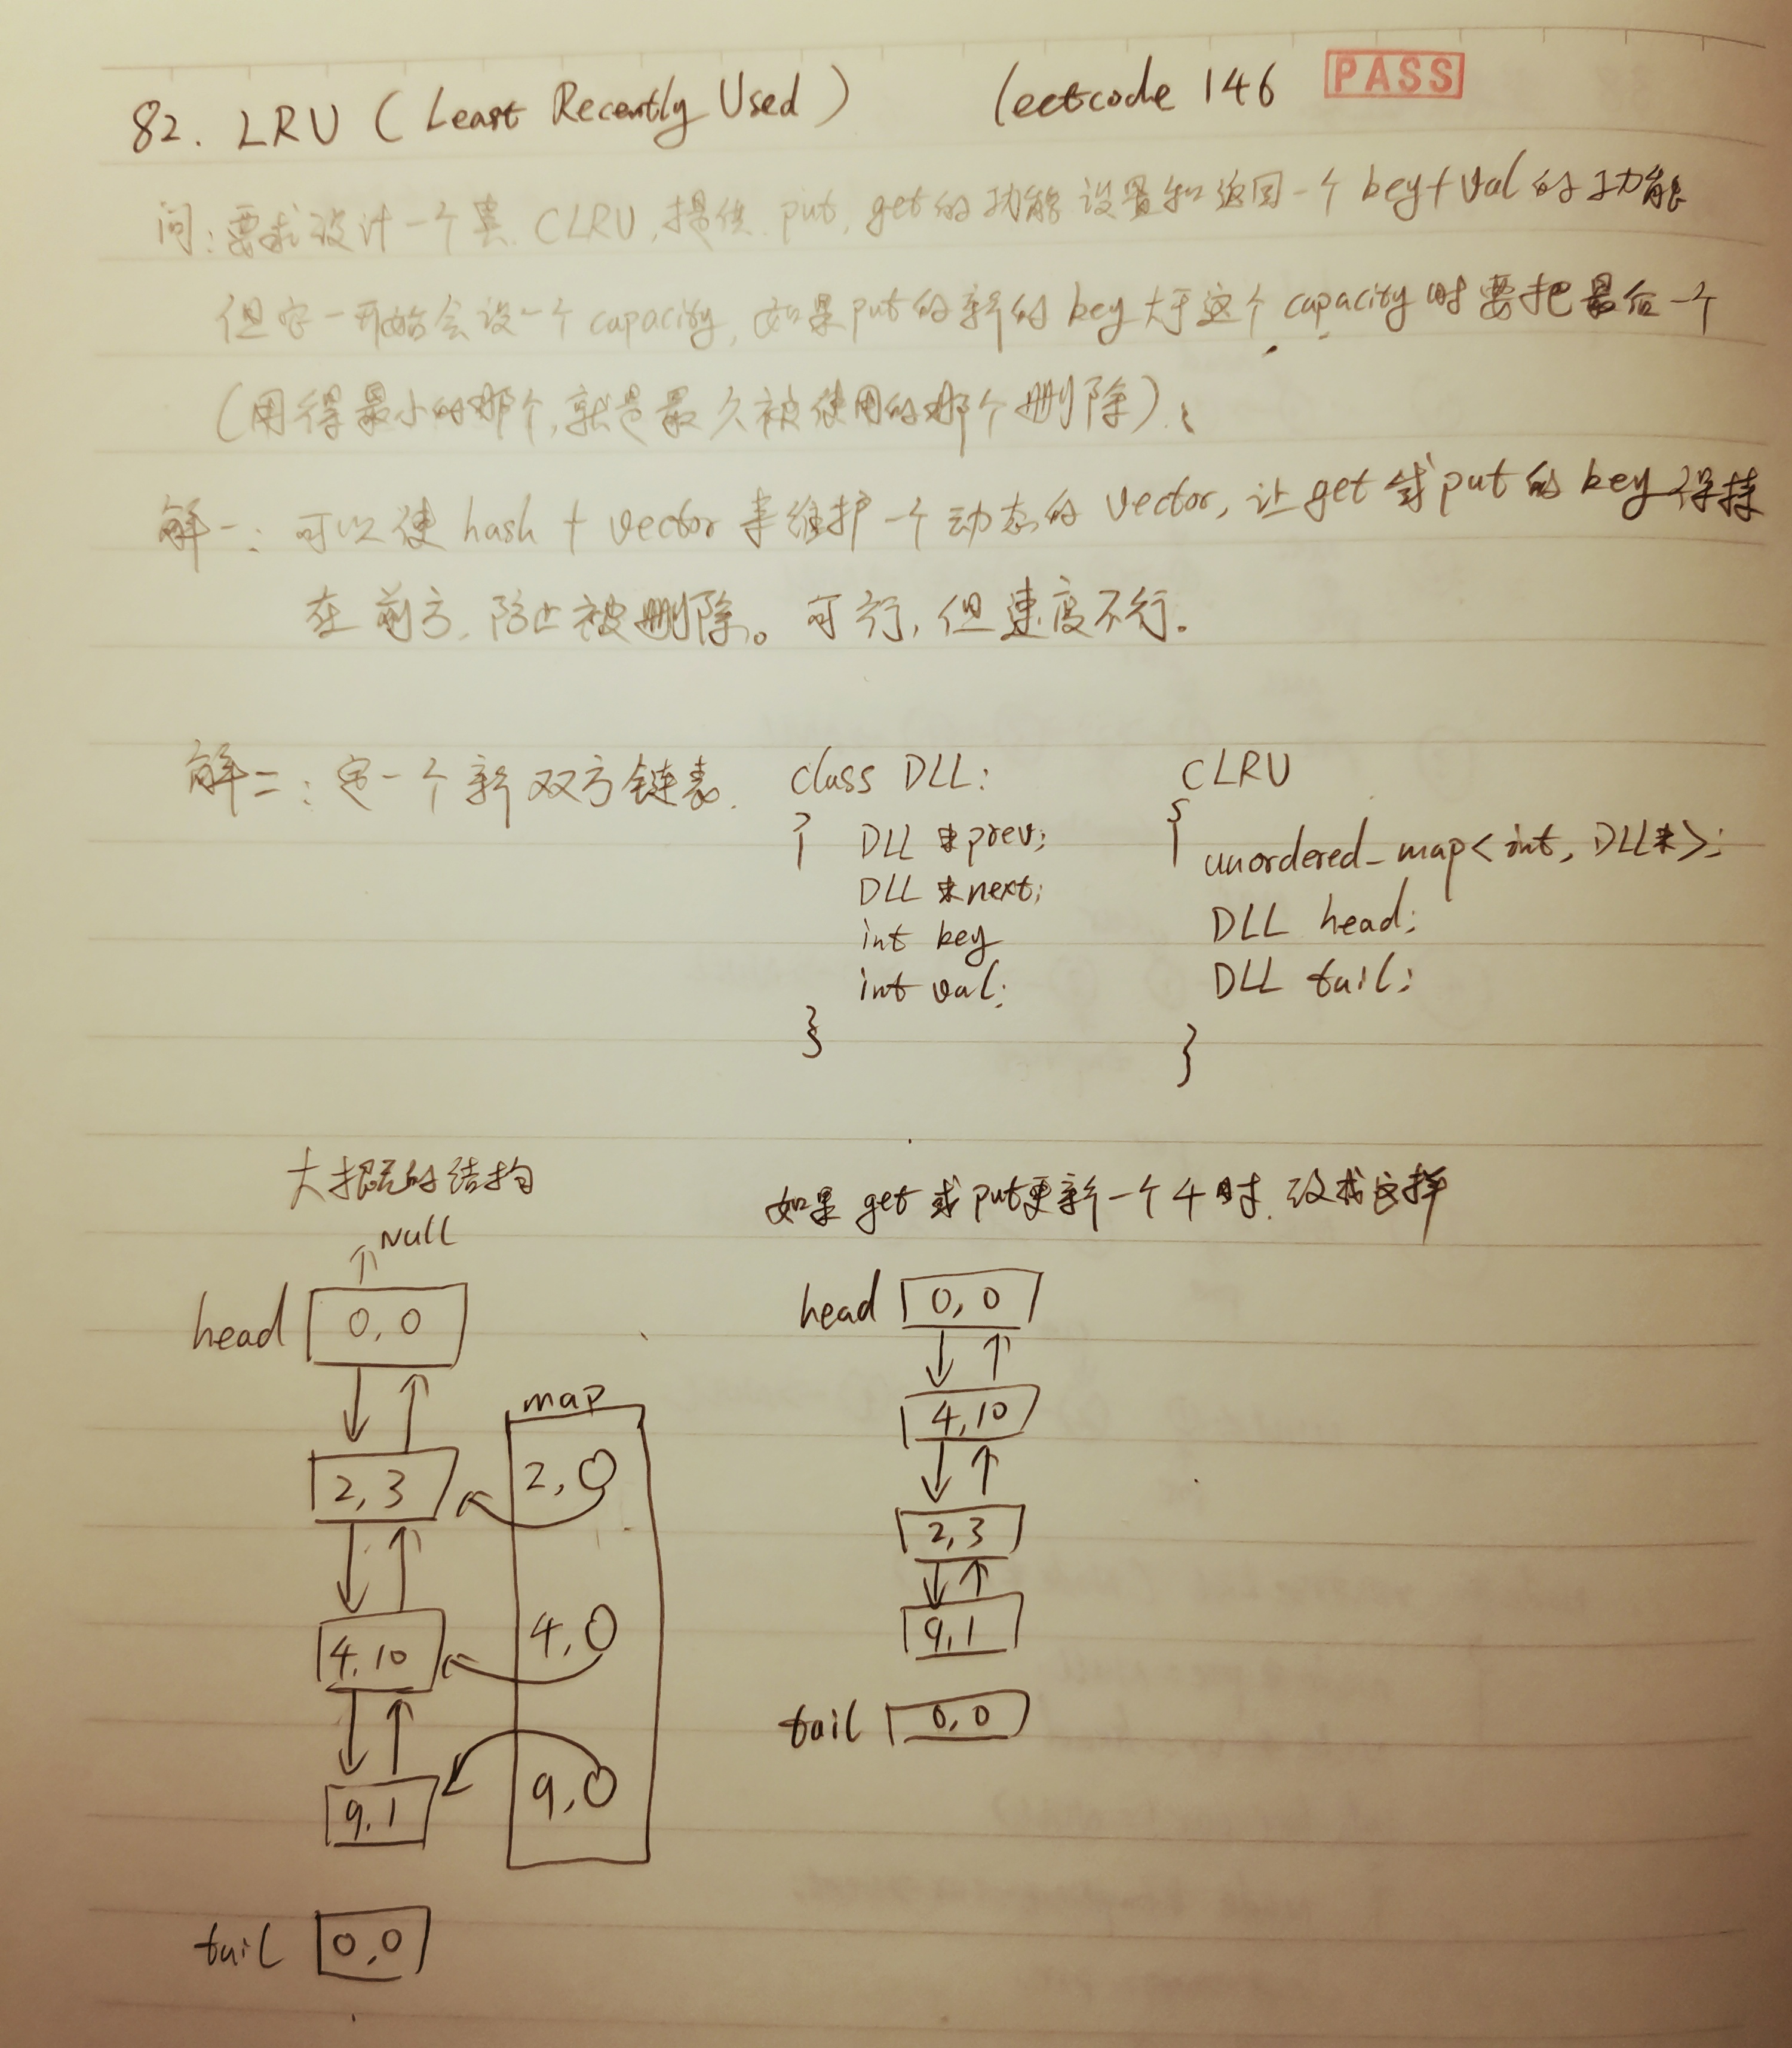 82. LRU (Least Recently Used) leetcode 146 PASS
问:要求设计一个类 CLRU,提供 put, get的功能 设置和返回一个 key+val 的功能
但它一开始会设一个 capacity, 如果put的新的 key大于这个 capacity时要把最后一个
(用得最小的那个,就是最久被使用的那个删除)、
解一: 可以使 hash + vector 来维护一个动态的 vector, 让 get 或 put 的 key 保持
在前方, 防止被删除。可行, 但速度不行.
解二: 定一个新双方链表.
class DLL:
{ DLL *prev;
DLL *next;
int key
int val;
}
CLRU
{ unordered_map<int, DLL*>;
DLL head;
DLL tail;
}
大概的结构
NULL
head 0, 0
2, 3
4, 10
9, 1
tail 0, 0
map
2,
4,
9,
如果 get 或 put更新一个 4 时. 改成这样
head 0, 0
4, 10
2, 3
9, 1
tail 0, 0